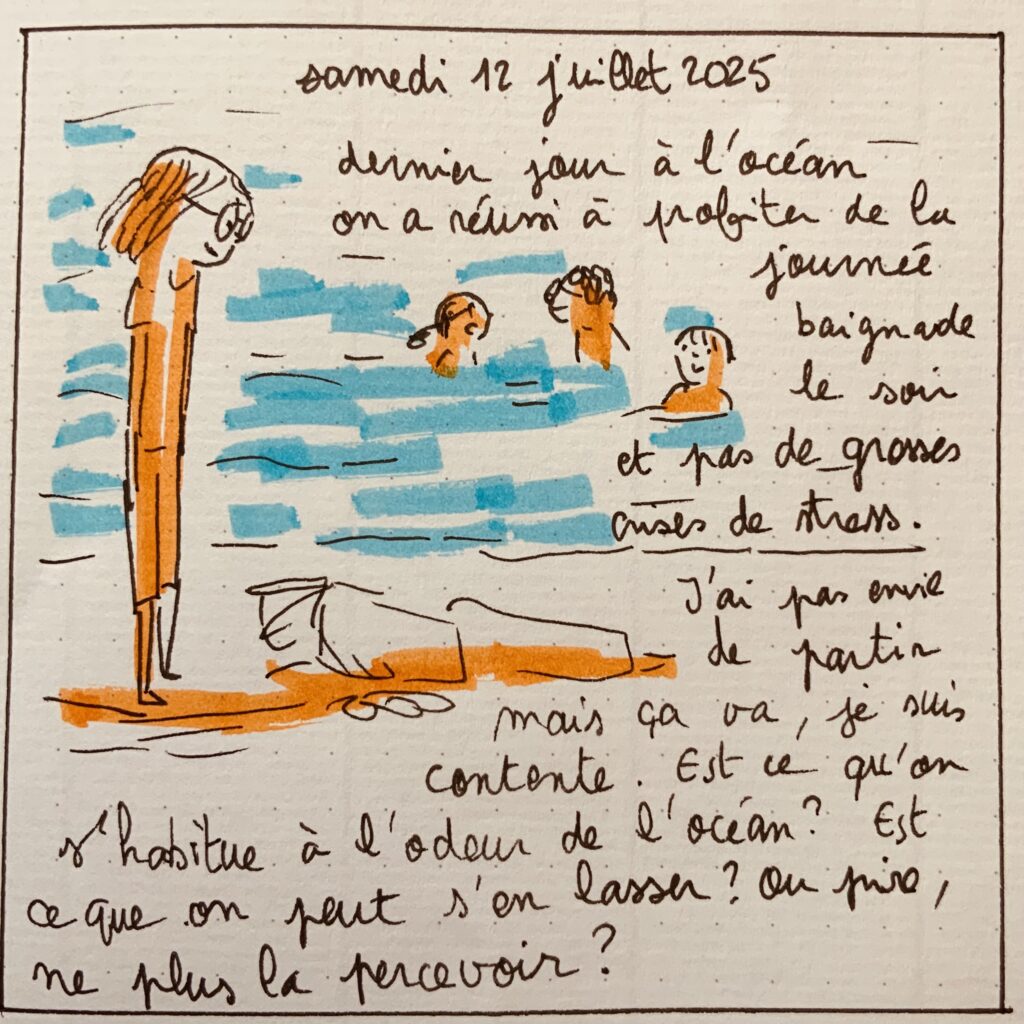 samedi 12 juillet 2025
dernier jour à l'océan
on a réussi à profiter de la
journée
baignade
le soir
et pas de grosses
crises de stress.
J'ai pas envie
de partir
mais ça va, je suis
contente. Est ce qu'on
s'habitue à l'odeur de l'océan? Est
ce que on peut s'en lasser? Ou pire,
ne plus la percevoir?